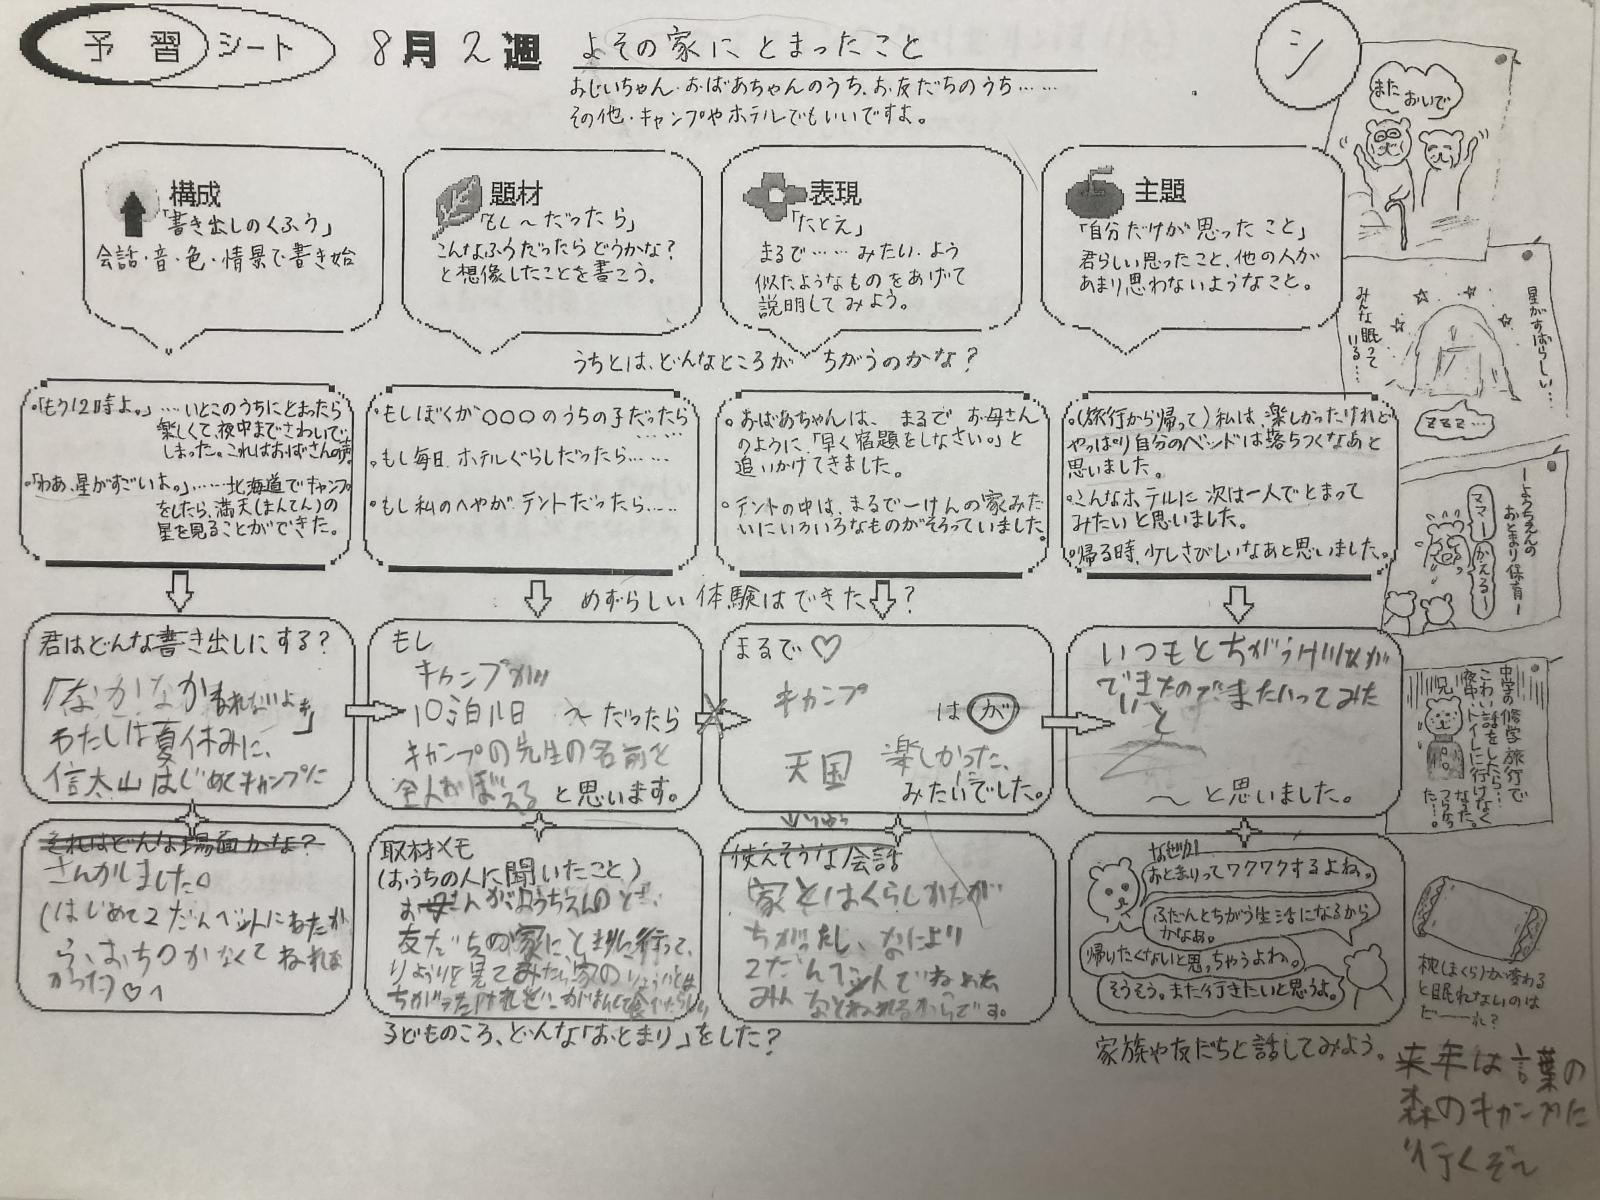 予習シート
8月2週
よその家にとまったこと
おじいちゃん・おばあちゃんのうち、お友だちのうち……
その他・キャンプやホテルでもいいですよ。
シ
構成
「書き出しのくふう」
会話・音・色・情景で書き始
題材
「もし〜だったら」
こんなふうだったらどうかな?
と想像したことを書こう。
表現
「たとえ」
まるで……みたい・よう
似たようなものをあげて
説明してみよう。
主題
「自分だけが思ったこと」
君らしい思ったこと、他の人が
あまり思わないようなこと。
また
おいで
うちとは、どんなところがちがうのかな?
。「もう12時よ。」…いとこのうちにとまったら
楽しくて、夜中までさわいで
しまった。これはおばさんの声。
。「わあ、星がすごいよ。」……北海道でキャンプ
をしたら、満天(まんてん)の
星を見ることができた。
。もしぼくが○○○のうちの子だったら
……
。もし毎日、ホテルぐらしだったら……
。もし私のへやが、テントだったら……
。おばあちゃんは、まるでお母さん
のように、「早く宿題をしなさい。」と
追いかけてきました。
。テントの中は、まるで一けんの家みた
いにいろいろなものがそろっていました。
。(旅行から帰って)私は、楽しかったけれど
やっぱり自分のベッドは落ちつくなあと
思いました。
。こんなホテルに次は一人でとまって
みたいと思いました。
。帰る時、少しさびしいなあと思いました。
星がすばらしい…
みんな眠って
いる…
ZZZ…
ーようちえんの
おとまり保育ー
ママー
かえるー
めずらしい体験はできた?
君はどんな書き出しにする?
「なかなか
わたしは夏休みに、
信太山はじめてキャンプに
もし
キャンプが
10泊11日
〜だったら
キャンプの先生の名前を
全人おぼえる と思います。
まるで♡
キャンプ
は が
天国 楽しかった、
みたいでした。
いつもとちがう
できたのでまたいってみた
いと
〜と思いました。
中学の修学旅行で
こわい話をしたら…
夜中、トイレに行けなく
なった。
つらかっ
た…。
兄
それはどんな場面かな?
さんかしました。
(はじめて2だんベットにねたか
ら、おちつかなくてねれな
かった)♡
取材メモ
(おうちの人に聞いたこと)
お母さんがようちえんのとき、
友だちの家にとまりに行って、
使えそうな会話
家とはくらしかたが
ちがったし、なにより
2だんベットでねれた
みんなとねれるからです。
なぜか
おとまりってワクワクするよね。
ふだんとちがう生活になるから
かなあ。
帰りたくないと思っちゃうよね。
そうそう。また行きたいと思うよ。
枕(まくら)が変わる
と眠れないのは
だーーれ?
子どものころ、どんな「おとまり」をした?
家族や友だちと話してみよう。
来年は言葉の
森のキャンプに
行くぞ〜